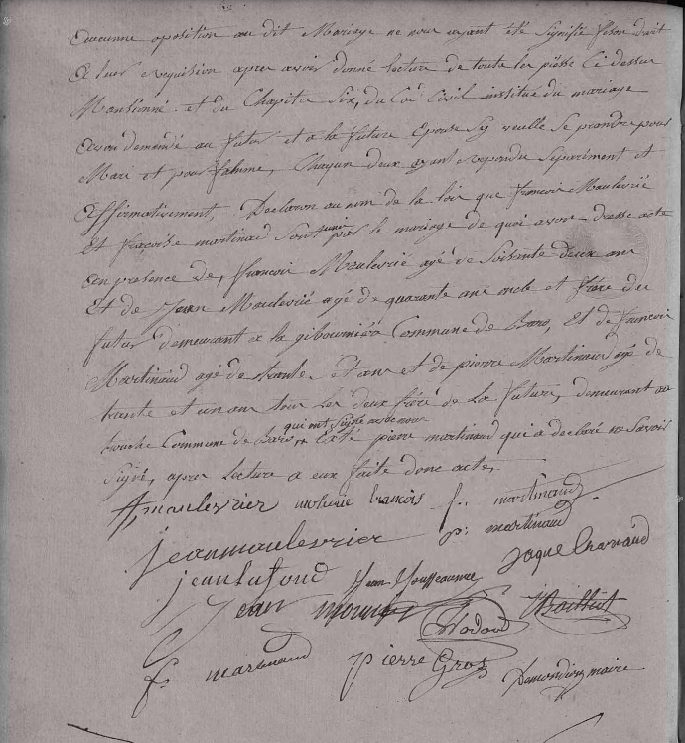 Aucunne oposition au dit Mariage ne nous ayant été Signifié feson droit
a leur requisision apres avoir donné lecture de toute les piesse Ci dessus
Mentionné et du Chapitre Six, du Code Civil institué du mariage
avon demandé au futur et a la future Epouse Sy veulle Se prandre pour
Mari et pour famme, Chaqun deux ayant repondu Separément et
affirmativement, Declaron au nom de la loix que françois Maulevrié
Et françoise martinaud Sont unis par le mariage de quoi avon dressé acte
en presence de, françois Maulevrié agé de Soisente deux ans
Et de Jean Maulevrié agé de quarante ans oncle et frére du
futur demeurant a la gibournière Commune de Baro, Et de françois
Martinaud agé de trante Et ans et de pierre Martinaud agé de
trente et un ans tous les deux frére de la future, demeurant au
Commune de Baro, qui ont Signé avec nous pierre martinaud qui a declaré ne Savoir
Signé, apres Lecture a eux faite dont acte,
maulevrier francois f. martinaud
jean maulevrier p. martinaud
jean lafond Jean jaque
jean
f. martinaud pierre Gros maire